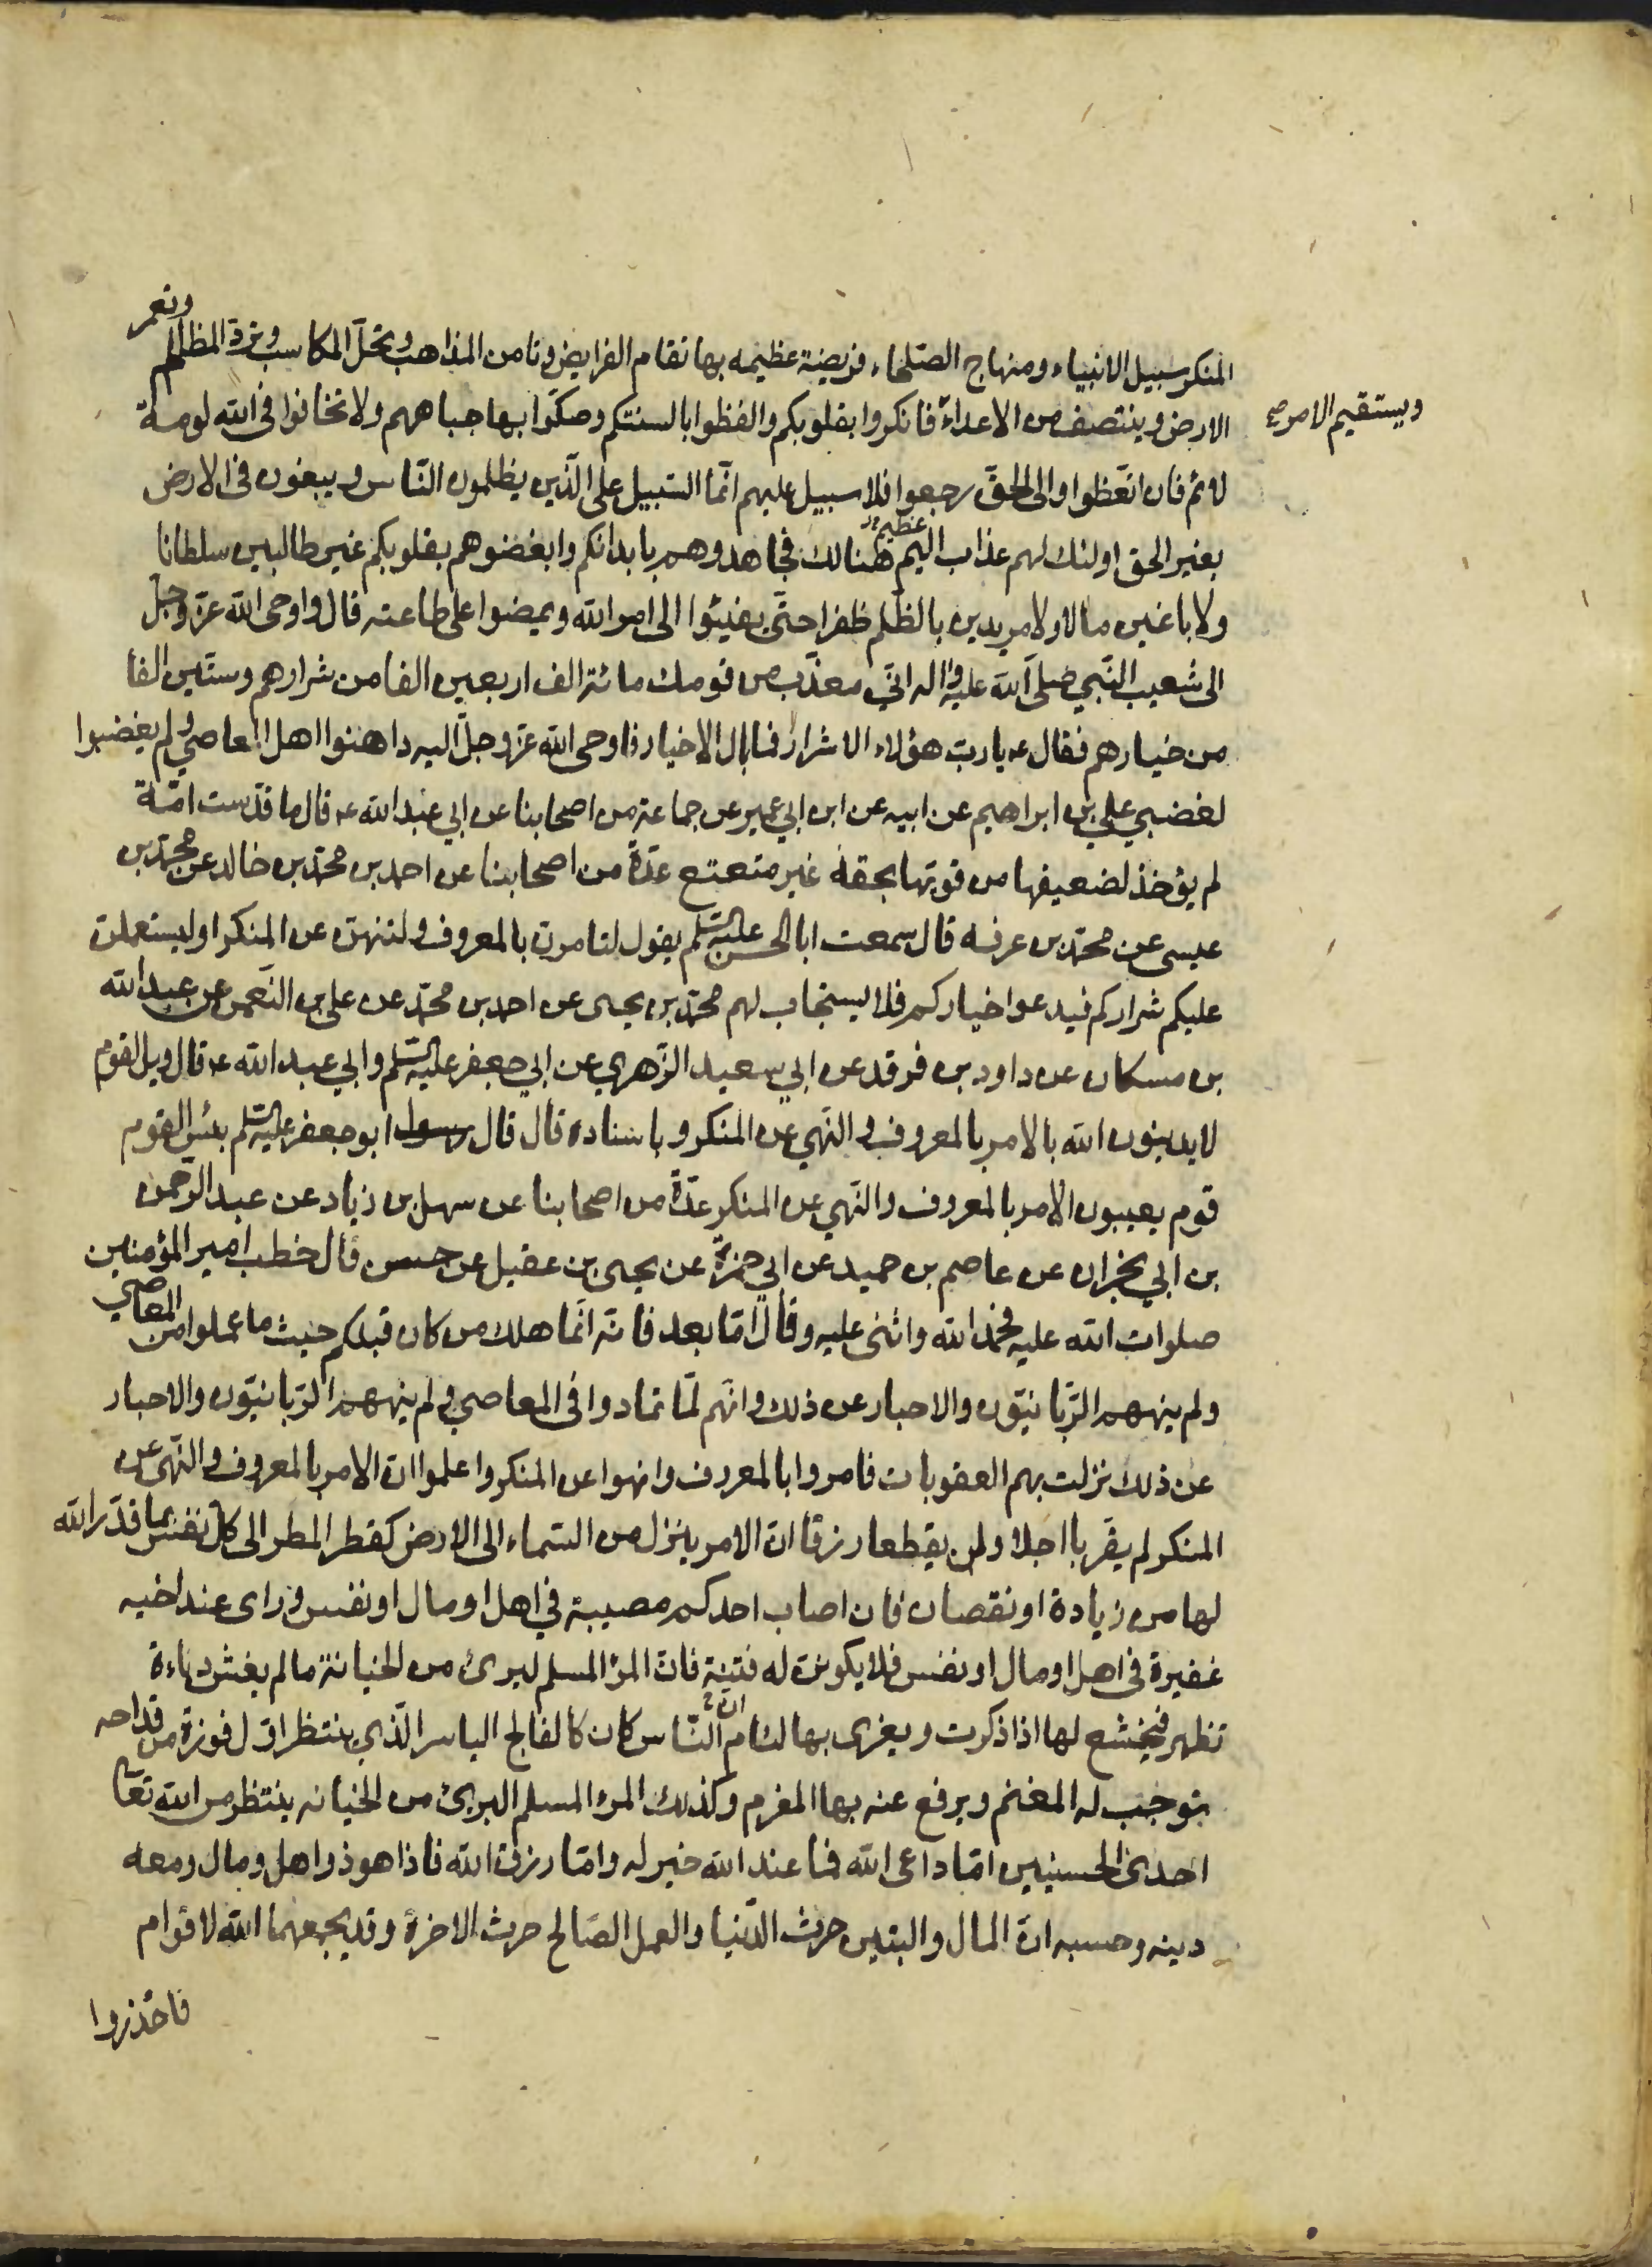 المنكر سبيل الانبياء ومنهاج الصلحاء فريضة عظيمه بها تقام الفرايض وتامن المذاهب وتحلّ المكاسب وتردّ المظالم وتعمر
الارض وينتصف من الاعداء فانكروا بقلوبكم والفظوا بالسنتكم وصكّوا بها جباههم ولا تخافوا في الله لومة
ويستقيم الامر صح
لائم فان اتعظوا والى الحقّ رجعوا فلا سبيل عليهم انّما السّبيل على الّذين يظلمون النّاس ويبغون في الارض
بغير الحق اولئك لهم عذاب اليم هنالك فجاهدوهم بابدانكم وابغضوهم بقلوبكم غير طالبين سلطانا
عظيم
ولا باغين مالا ولا مريدين بالظّلم ظفرا حتّى يفيئوا الى امر الله ويمضوا على طاعته قال واوحى الله عزّ وجلّ
الى شعيب النّبي صلى الله عليه واله انّي معذّب من قومك مائة الف اربعين الفا من شرارهم وستّين الفا
من خيارهم فقال ع يا ربّ هؤلاء الاشرار فما بال الاخيار فاوحى الله عزّ وجلّ اليه داهنوا اهل المعاصي ولم يغضبوا
لغضبي علي بن ابراهيم عن ابيه عن ابن ابي عمير عن جماعة من اصحابنا عن ابي عبد الله ع قال ما قدّست امّة
لم يؤخذ لضعيفها من قويّها بحقه غير متعتع عدّة من اصحابنا عن احمد بن محمّد بن خالد عن محمّد بن
عيسى عن محمّد بن عرفه قال سمعت ابا الحسن عليه السلم يقول لتامرنّ بالمعروف ولتنهنّ عن المنكر او ليستعملنّ
عليكم شراركم فيدعوا خياركم فلا يستجاب لهم محمّد بن يحيى عن احمد بن محمّد عن علي بن النّعمن عن عبد الله
بن مسكان عن داود بن فرقد عن ابي سعيد الزّهري عن ابي جعفر عليه السلم وابي عبد الله ع قال ويل لقوم
لا يدينون الله بالامر بالمعروف والنّهي عن المنكر وباسناده قال قال رسول ابو جعفر عليه السلم بئس القوم
قوم يعيبون الامر بالمعروف والنّهي عن المنكر عدّة من اصحابنا عن سهل بن زياد عن عبد الرّحمن
بن ابي نجران عن عاصم بن حميد عن ابي حمزة عن يحيى بن عقيل عن حسن قال خطب امير المؤمنين
صلوات الله عليه فحمد الله واثنى عليه وقال امّا بعد فانّه انّما هلك من كان قبلكم حيث ما عملوا من المعاصي
ولم ينههم الرّبّانيّون والاحبار عن ذلك وانّهم لمّا تمادوا في المعاصي ولم ينههم الرّبانيّون والاحبار
عن ذلك نزلت بهم العقوبات فامروا بالمعروف وانهوا عن المنكر واعلموا انّ الامر بالمعروف والنّهي عن
المنكر لم يقرّبا اجلا ولن يقطعا رزقا انّ الامر ينزل من السّماء الى الارض كقطر المطر الى كلّ نفس بما قدّر الله
لها من زيادة او نقصان فان اصاب احدكم مصيبة في اهل او مال او نفس وراى عند اخيه
غفيرة في اهل او مال او نفس فلا يكوننّ له فتنة فانّ المرء المسلم لبرئ من الخيانة ما لم يغش دناءة
تظهر فيخشع لها اذا ذكرت ويغرى بها لئام النّاس كان كالفالج الياسر الّذي ينتظر اوّل فوزة من قداحه
توجب له المغنم ويرفع عنه بها المغرم وكذلك المرء المسلم البرئ من الخيانه ينتظر من الله تعالى
احدى الحسنيين امّا داعي الله فما عند الله خير له وامّا رزق الله فاذا هو ذو اهل ومال ومعه
دينه وحسبه انّ المال والبنين حرث الدّنيا والعمل الصّالح حرث الاخرة وقد يجمعهما الله لاقوام
فاحذروا